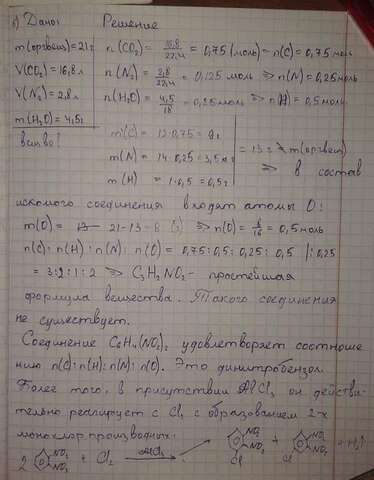 Дано: Решение
m(орг.вещ)=21г n(CO₂)= 16,8/22,4 = 0,75 (моль) = n(C)= 0,75 моль
V(CO₂)=16,8л n(N₂)= 2,8/22,4 = 0,125 моль ⇒ n(N)=0,25моль
V(N₂)=2,8л n(H₂O)= 4,5/18 = 0,25моль ⇒ n(H)=0,5моль.
m(H₂O)=4,5г m(C)= 12·0,75= 9г
m(N)= 14·0,25=3,5г = 13 ≠ m(орг.вещ)
m(H)= 1·0,5=0,5г ⇒ в состав
искомого соединения входят атомы O:
m(O)= 21-13=8 ⇒ n(O)= 8/16 = 0,5моль
n(C):n(H):n(N):n(O)= 0,75:0,5:0,25:0,5 |:0,25
= 3:2:1:2 ⇒ C₃H₂NO₂- простейшая
формула вещества. Такого соединения
не существует.
Соединение C₆H₄(NO₂)₂ удовлетворяет соотноше
нию n(C):n(H):n(N):n(O). Это динитробензол
Более того, в присутствии AlCl₃ он действи-
тельно реагирует с Cl₂ с образованием 2-х
монохлорпроизводных:
2 NO₂ NO₂ + Cl₂ AlCl₃ → NO₂ NO₂ Cl + NO₂ NO₂ Cl